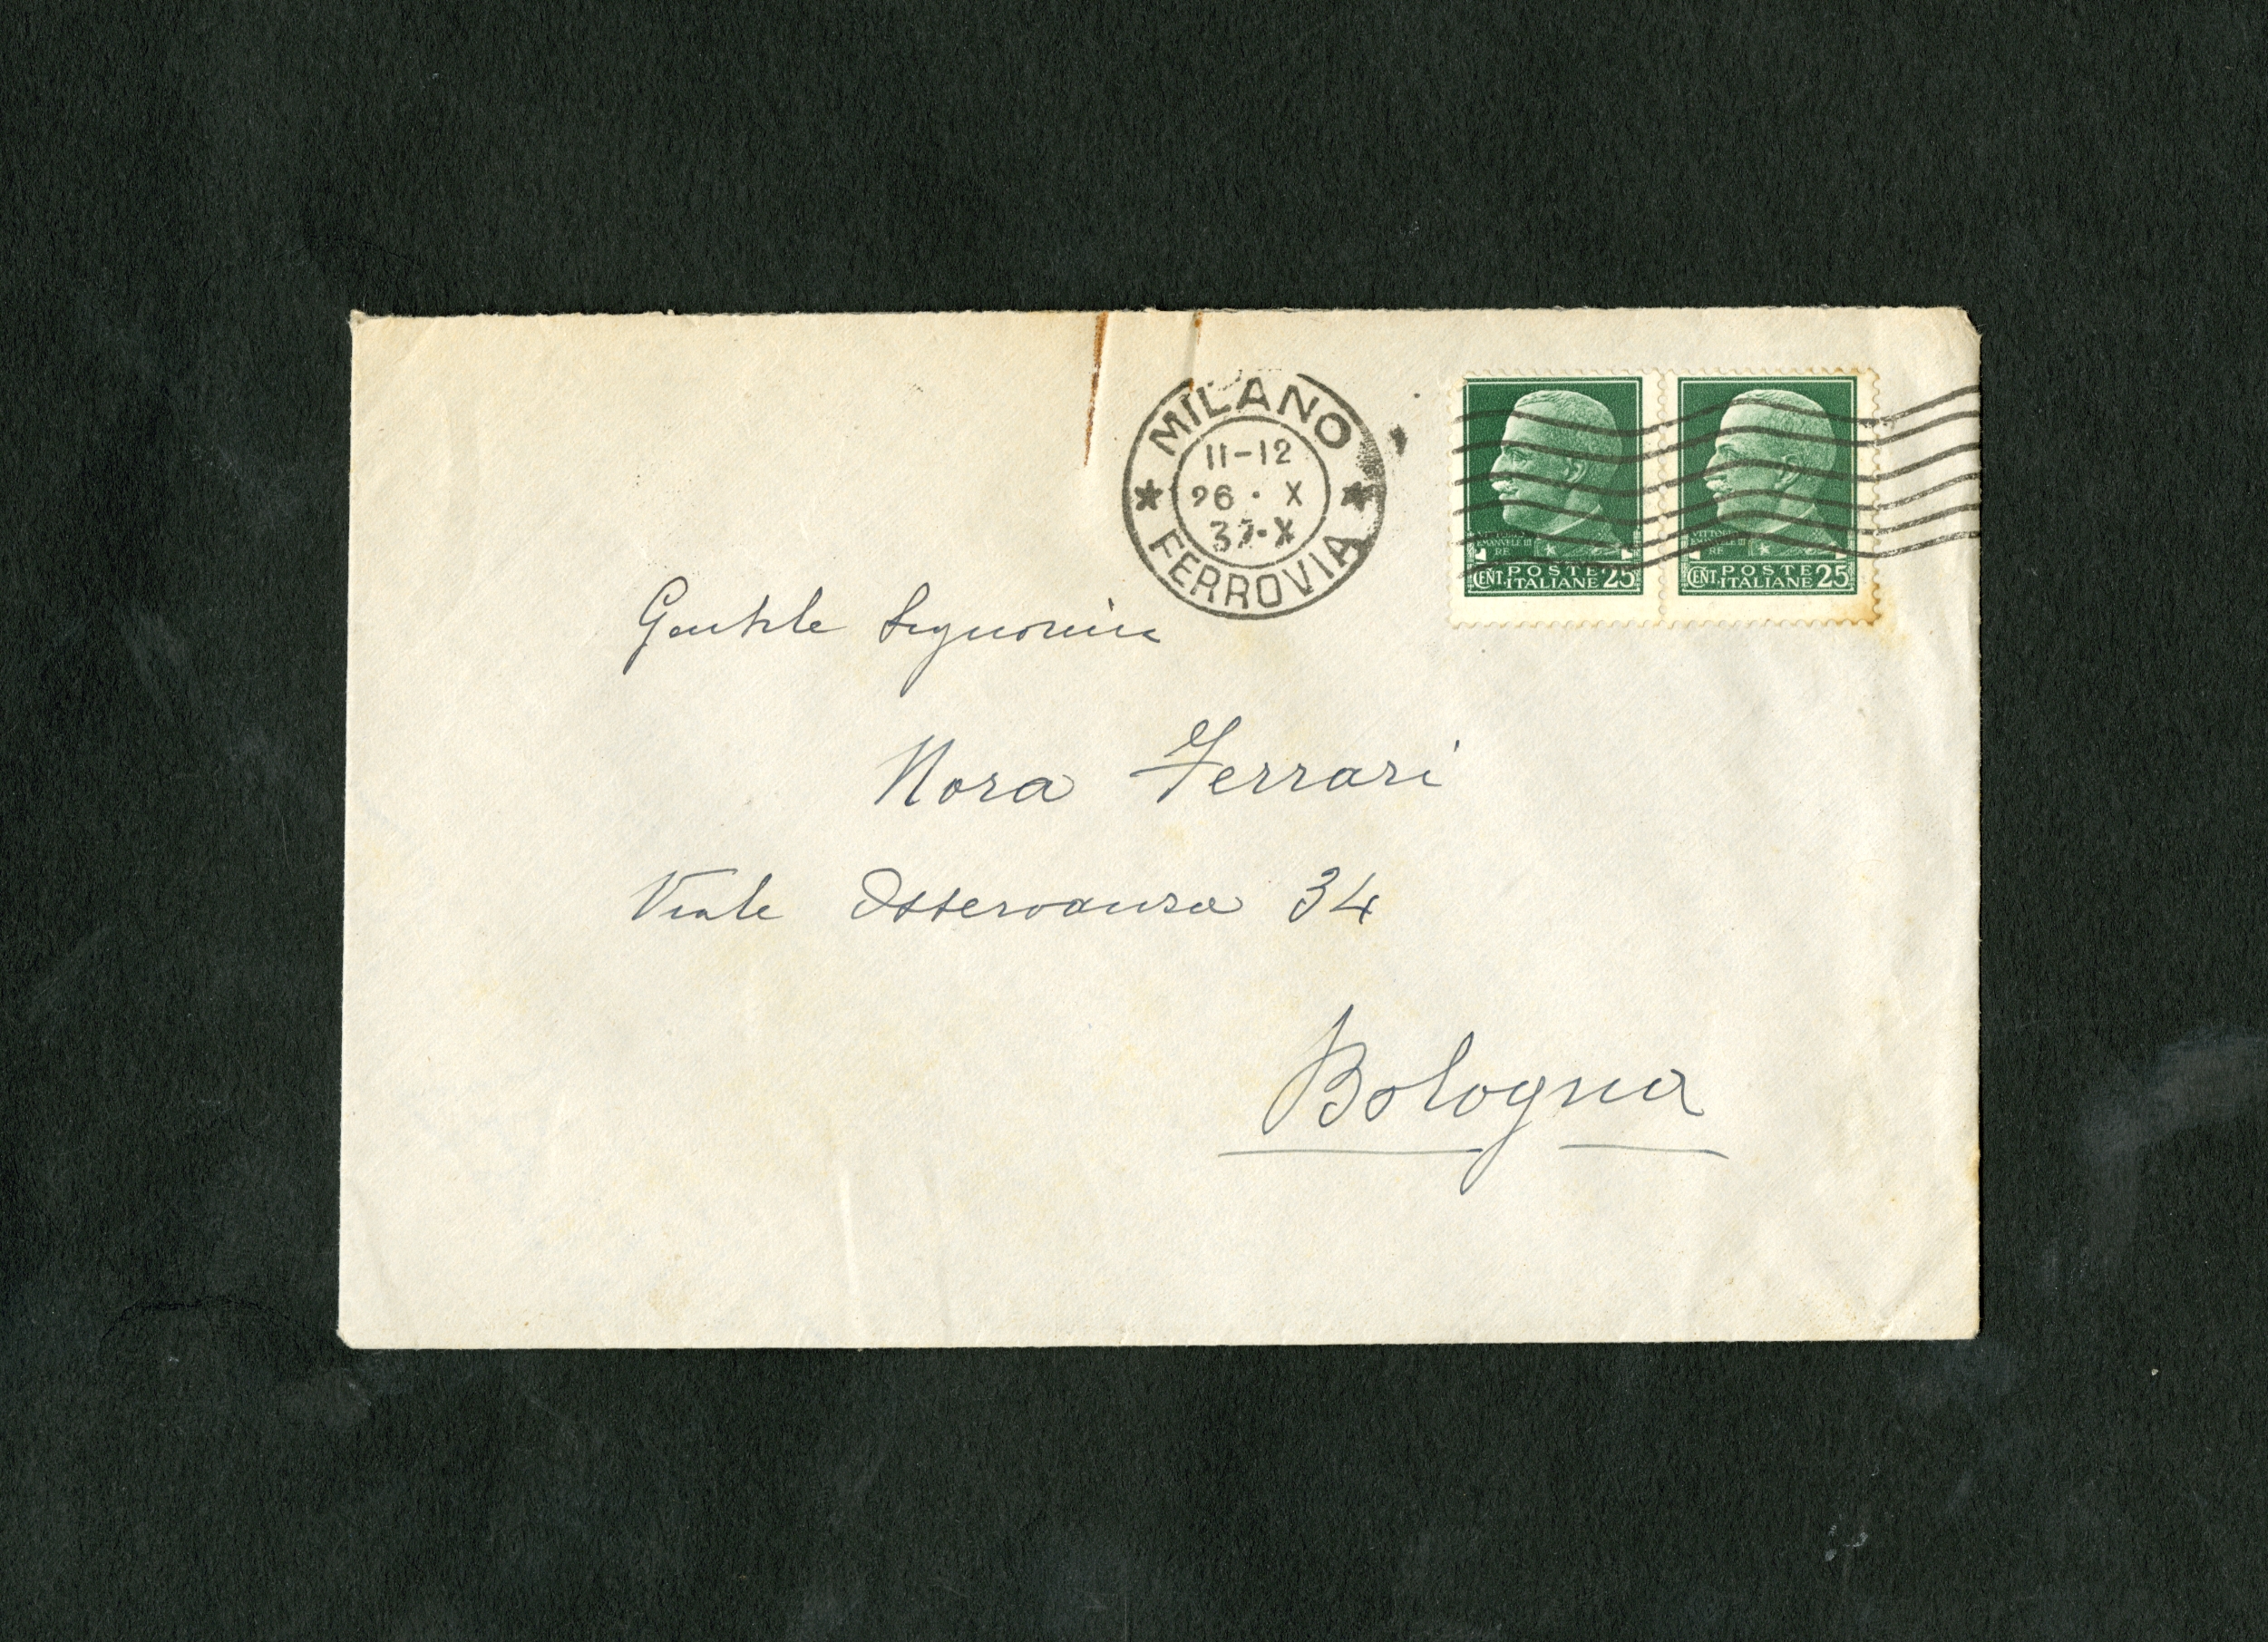 MILANO
11-12
26 · X
32·X
FERROVIA
VITTORIO
EMANVELE III
RE
CENT. POSTE ITALIANE 25
VITTORIO
EMANVELE III
RE
CENT. POSTE ITALIANE 25
Gentile Signorina
Nora Ferrari
Viale Osservanza 34
Bologna